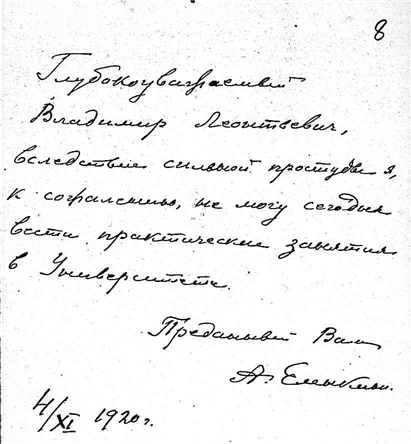 8
Глубокоуважаемый
Владимир Леонтьевич,
вследствие сильной простуды я,
к сожалению, не могу сегодня
вести практические занятия
в Университете.
Преданный Вам
А.
4/XI 1920 г.